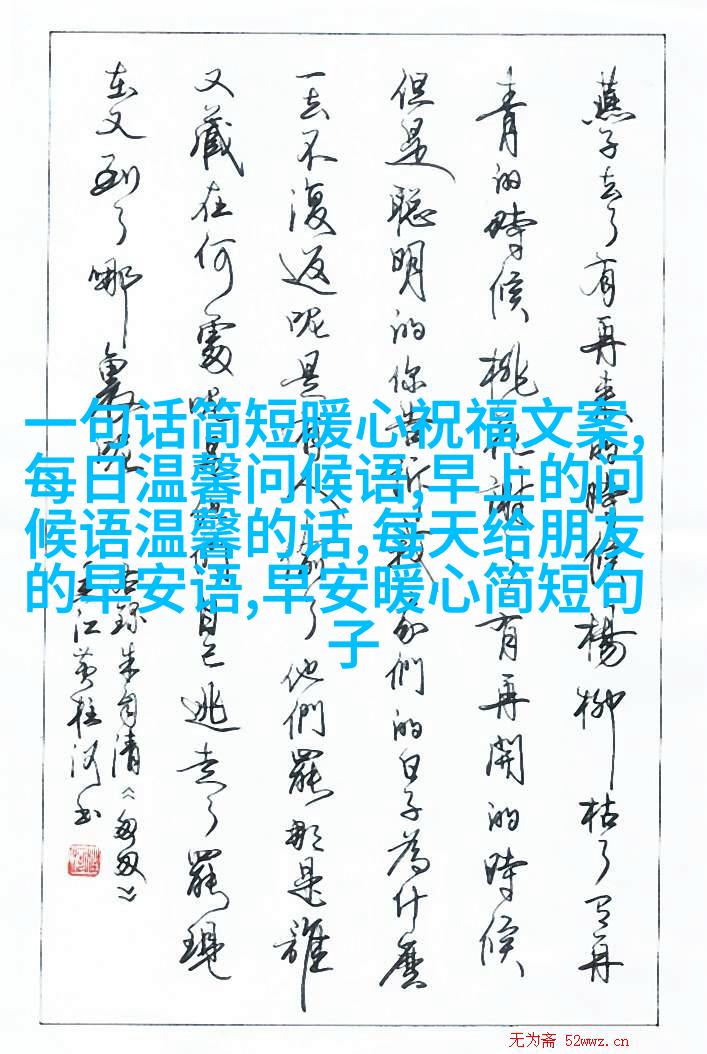 一句话简短暖心祝福文案,
每日温馨问候语,早上的问
候语温馨的话,每天给朋友
的早安语,早安暖心简短句
子
燕子去了有再來的時候楊柳枯了有再
青的時候桃花謝了有再開的時候
但是聰明的你告訴我我們的日子為什麼
一去不復返呢是有人偷了他們罷那是誰
又藏在何處呢是他們自己逃走了罷現
在又到了哪裏呢
錄朱自清《匆匆》
江黄柱河书
无为斋 52wwz.cn